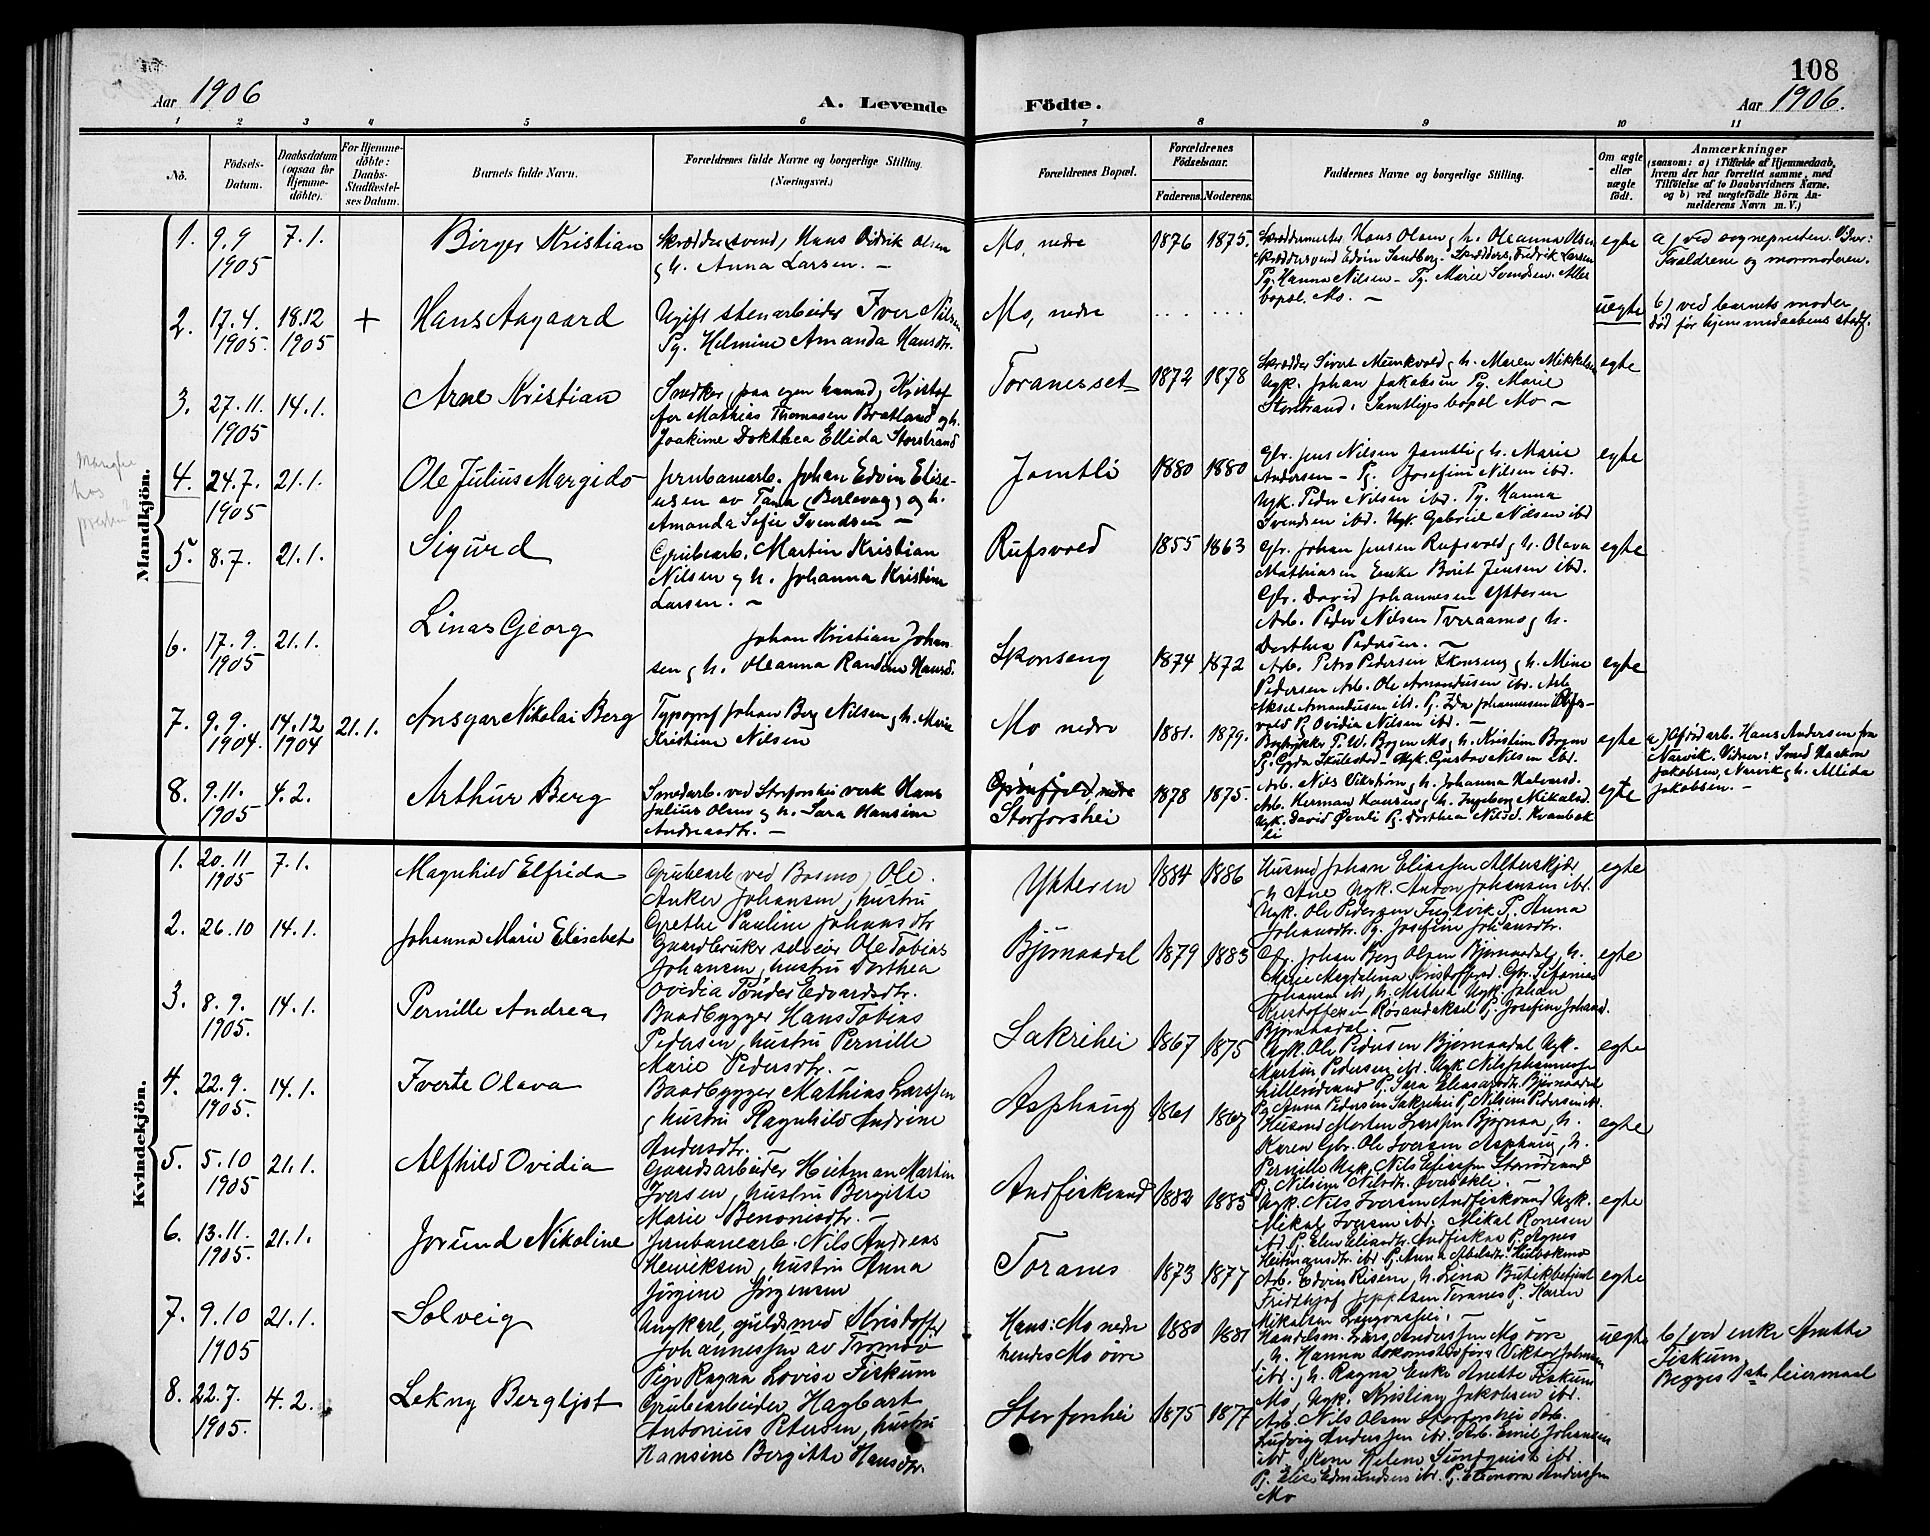 108
Aar 1906
A. Levende
Födte.
Aar 1906.
1 2 3 4 5 6 7 8 9 10 11
Nö.
Födsels-
Datum.
Daabsdatum
(ogsaa for
Hjemme-
döbte).
For Hjemme-
döbte:
Daabs-
Stadfæstel-
ses Datum.
Barnets fulde Navn.
Forældrenes fulde Navne og borgerlige Stilling.
(Næringsvei.)
Forældrenes Bopæl.
Forældrenes
Födselsaar.
Faderens.
Moderens.
Faddernes Navne og borgerlige Stilling.
Om ægte
eller
uægte
födt.
Anmærkninger
(saasom: a) i Tilfælde af Hjemmedaab,
hvem der har forrettet samme, med
Tilföielse af to Daabsvidners Navne,
og b) ved uægtefödte Börn An-
melderens Navn m. V.)
Mandkjön.
1.
9.9
1905
7.1.
Birger Kristian
Skræddersvend, Hans Didrik Olsen
og h. Anna Larsen. —
Mo, nedre
1876
1875.
Skræddermester Hans Olsen og h. Oleanna Olsen
Skræddersvend Edvin Sandberg. Skræddersv. Fredrik Larsen
Pg. Hanna Nilsen – Pg. Marie Svendsen. Alles
bopæl Mo. —
egte
a) ved sognepresten. Vidner:
Foreldrene og mormoderen.
2.
17.4.
1905.
18.12
1905
+
Hans Aagaard
Ugift stenarbeider Iver Nilsen
Pg. Helmine Amanda Hansdtr.
Mo, nedre
uegte
b) ved barnets moder
død før hjemmedaabens stadf.
3.
27.11.
1905
14.1.
Arne Kristian
Snedker paa egen haand, Kristof
fer Mathias Thomasen Bratland og h.
Joakime Dorthea Ellida Storstrand
Toranesset
1872
1878
Skrædder Sivert Munkvold og h. Maren Mikkelsen
Ugk. Johan Jakobsen Pg. Marie
Storstrand. Samtliges bopæl Mo —
egte
4.
24.7.
1905
21.1.
Ole Julius Margido
Jernbanearb. Johan Edvin Elise-
usen av Tana (Berlevaag) og h.
Amanda Sofie Svendsen —
Jamtli
1880
1880
Gbr. Jens Nilsen Jamtli og h. Marie
Andersen – Pg. Josefine Nilsen ibd.
Ugk. Peder Nilsen ibd. Pg. Hanna
Svendsen ibd. Ugk. Gabriel Nilsen ibd
egte
5.
8.7.
21.1.
Sigurd
Grubearb. Martin Kristian
Nilsen og h. Johanna Kristine
Larsen. —
Rufsvold
1855
1863
Gbr. Johan Jensen Rufsvold og h. Olava
Mathiasen Enke Borit Jensen ibd.
Gbr. David Johannesen Ytteren
Arb. Peder Nilsen Tveraamo og h.
Dorthea Pedersen. —
egte
6.
17.9.
1905
21.1.
Linas Georg
Johan Kristian Johan-
sen og h. Oleanna Randine Hansd.
Skonseng
1874
1872
Arb. Petro Pedersen Skonseng og h. Mine
Pedersen Arb. Ole Amandusen ibd. Arb
Aksel Amandusen ibd. Pg. Ida Johannesen
Pg. Ovidia Nilsen ibd. —
egte
7.
9.9.
1904.
14.12
1904
21.1.
Ansgar Nikolai Berg
Typograf Johan Berg Nilsen og h. Marie
Kristine Nilsen
Mo nedre
1881.
1879.
Bogtrykker P. W. Bogen Mo og h. Kristine Bogen
Pg. Gyda Skulestad – Ugk. Gustav Nilsen ibd.
egte
Hans Andersen fra
Narvik. Vidner: Smed Haakon
Jakobsen, Narvik og h. Alida
Jakobsen. —
8.
9.11.
1905
4.2.
Arthur Berg
Smedarb. ved Storforshei verk Hans
Julius Olsen og h. Sara Hansine
Andreasdtr. —
Grønfjeld, nedre
Storforshei
1878
1875.
Arb. Nils Vikstrøm og h. Johanna Halvorsd.
Arb. Herman Hansen og h. Ingeborg Mikalsd.
Ugk. David Pg. Dorthea Nilsd. Kvanbek
li
egte
Kvindekjön.
1.
20.11
1905
7.1.
Magnhild Elfrida
Grubearb ved Bosmo, Ole
Anker Johansen, hustru
Grethe Pauline Johansdtr
Ytteren
1884
1886
Husmd Johan Eliassen Alterskjær
h. Ane Ugk. Anton Johansen ibd.
Ugk. Ole Pedersen Fuglvik Pg. Anna
Johansdtr. Pg. Josefine Johansdtr.
egte
2.
26.10
14.1.
Johanna Marie Elisebet
Gaardbruker selveier Ole Tobias
Johansen, hustru Dorthea
Ovidia Pønder Edvardsdtr.
Bjørnaadal
1879
1883
Gbr. Johan Berg Olsen Bjørnaadal, h.
Marie Magdalena Kristoffersd. Gbr. Sifanias
Johansen ibd, h. Mathea Ugk. Johan
Kristoffersen Pg. Josefine Johansd.
Bjørnaadal. —
egte
3.
8.9.
1905
14.1.
Pernille Andrea
Baadbygger Hans Tobias
Pedersen, hustru Pernille
Marie Pedersdtr. —
Sakrihei
1867
1875
Ugk. Ole Pedersen Bjørnaadal Ugk.
Martin Pedersen ibd. Ugk. Nils Johannesen
Lillerødvand Pg. Sara Eliasardtr. Bjørnaadal
Pg. Anna Pedersen Sakrihei Pg. Nilsine Pedersen ibd.
egte
4.
22.9.
1905.
14.1.
Iverte Olava
Baadbygger Mathias Larssen
og hustru Ragnhild Andrine
Andersdtr. —
Asphaug
1861
Husmd Morten Larssen Bjørnaa, h.
Karen Gbr. Ole Iversen Asphaug, h.
Pernille Ugk. Nils Eliassen Storrødvand
Pg. Nilsine Nilsdtr. —
egte
5.
5.10
1905
21.1.
Alfhild Ovidia
Gaardsarbeider Heitman Martin
Iversen, hustru Bergitte
Marie Benonisdtr. —
Andfiskvand
1882
1885
Ugk. Nils Iversen Andfiskvand Ugk.
Mikal Iversen ibd. Mikal Ronesen
ibd. Pg. Elen Eliasdtr. Andfiskaa Pg. Agnes
Heitmansdtr. ibd Pg. Anna Abelsdtr.
egte
6.
13.11.
1905.
21.1.
Jorund Nikoline
Jernbanearb. Nils Andreas
Henriksen, hustru Anna
Jørgine Jørgensen
Toranes
1873
1877
Arb. Edvin Risen, h. Lina Butikbetjent
Fridthjof Jeppesen Toranes Pg. Karen
Mikalsen
egte
7.
9.10
1905
21.1.
Solveig
Ungkarl, guldsmed Kristoffer
Johannessen av Tromsø
Pige Ragna Lovise Fiskum
Hans: Mo nedre
hendes Mo øvre
1880
1881
Handelsm. Lars Anderssen Mo øvre
h. Hanna Lokomotivfører Viktor Johnsen
ibd. og h. Ragna Enke Anette Fiskum
Mo, Ugk. Kristian Jakobsen ibd.
uegte
b) ved enke Anette
Fiskum
Begges 1ste leiermaal
8.
22.7.
1905.
4.2.
Lekny Bergljot
Grubearbeider Hagbart
Antonius Petersen, hustru
Hansine Bergitte Hansdtr.
Storforshei
1875
1877
Arb. Nils Olsen Storforshei Arb.
Ludvig Anderssen ibd. Arb. Emil Johansen
ibd. Kone Helene Sundquist ibd.
Pg. Elise Edmundsen ibd. Pg. Eleonora Anderssen
Mo